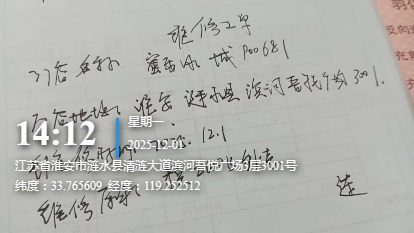 维修工单
门店名称 蜜雪冰城P00681
门店地址：淮安 涟水县 滨河吾悦广场3001.
14:12
星期一
2025-12-01
12.1
江苏省淮安市涟水县涟涟大道滨河吾悦广场3层3001号
纬度：33.765609 经度：119.252512
维修